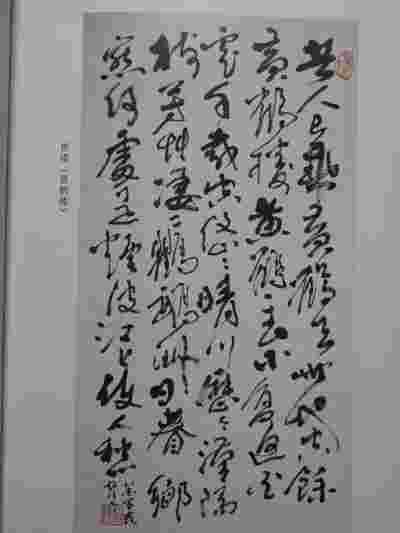 昔人已乘黃鶴去此地空餘
黃鶴樓黃鶴一去不復返白
雲千載空悠〻晴川歷〻漢陽
樹芳艸淒〻鸚鵡洲日暮鄉
關何處是煙波江上使人愁
崔颢《黄鹤楼》